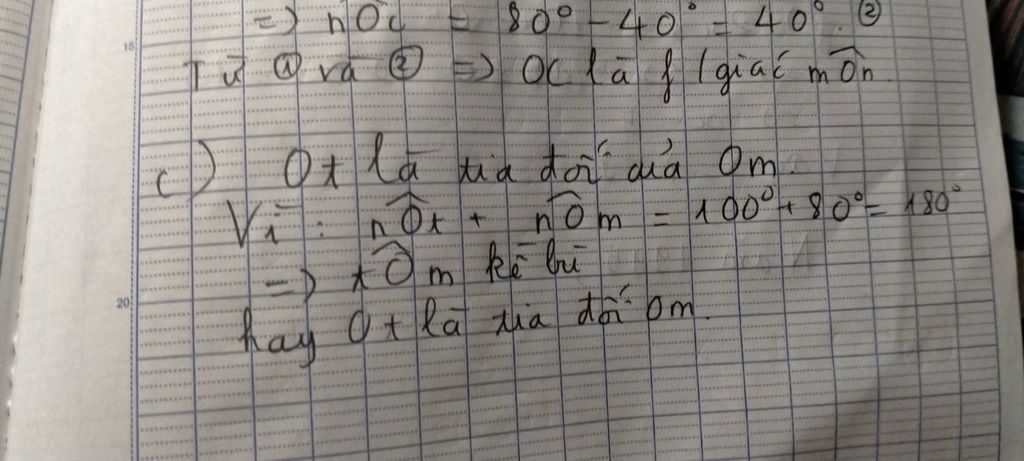 => nOc = 80° - 40° = 40° ②
Từ ① và ② => OC là f/giác mÔn
c) Ot là tia đối của Om.
Vì : nÔt + nÔm = 100° + 80° = 180°
=> tÔm kề bù
hay Ot là tia đối Om.
15
20